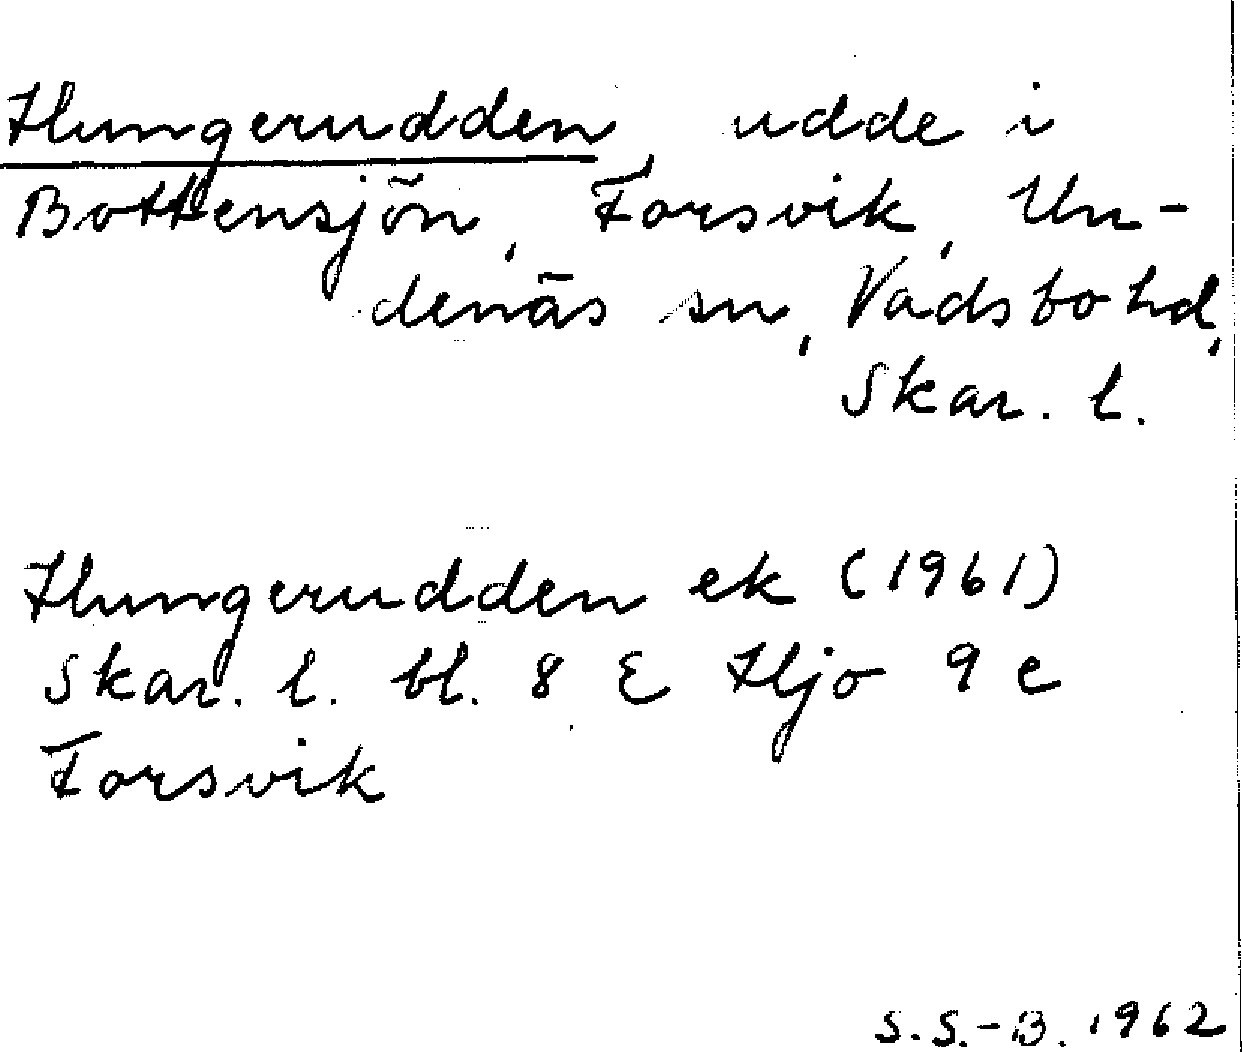 Hungerudden, udde i
Bottensjön, Forsvik, Un-
denäs sn, Vadsbo hd,
Skar. l.
Hungerudden ek (1961)
Skar. l. bl. 8 E Hjo 9 c
Forsvik
S.S.-B. 1962